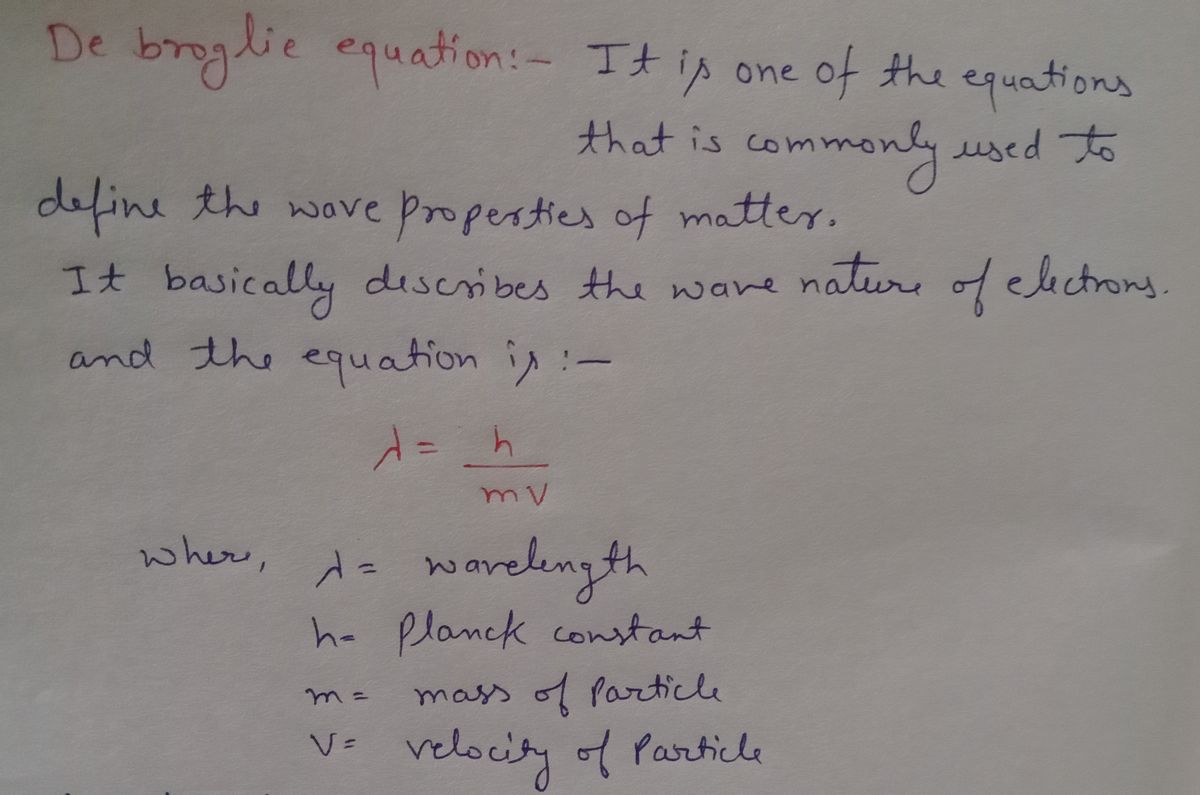 De broglie equation:- It is one of the equations
that is commonly used to
define the wave properties of matter.
It basically describes the wave nature of electrons.
and the equation is :-
λ = h
mv
where, λ = wavelength
h = Planck constant
m = mass of Particle
v = velocity of Particle